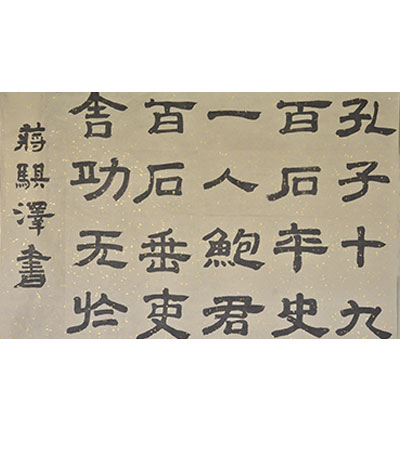 孔子十九
百石卒史
一人鮑君
百石垂吏
舍功无於
蔣騏澤書